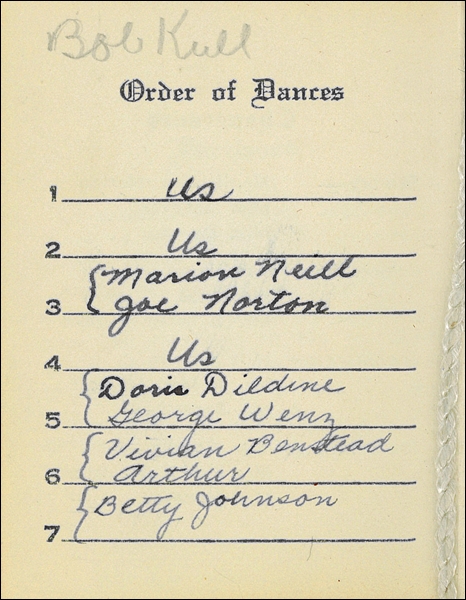 Bob Kull
Order of Dances
1 Us
2 Us
Marion Neill
3 Joe Norton
4 Us
Doris Dildine
5 George Wenz
Vivian Benstead
6 Arthur
Betty Johnson
7